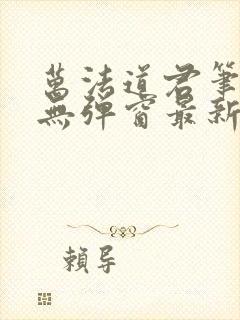 萬法道君筆
無彈窗最新
賴導